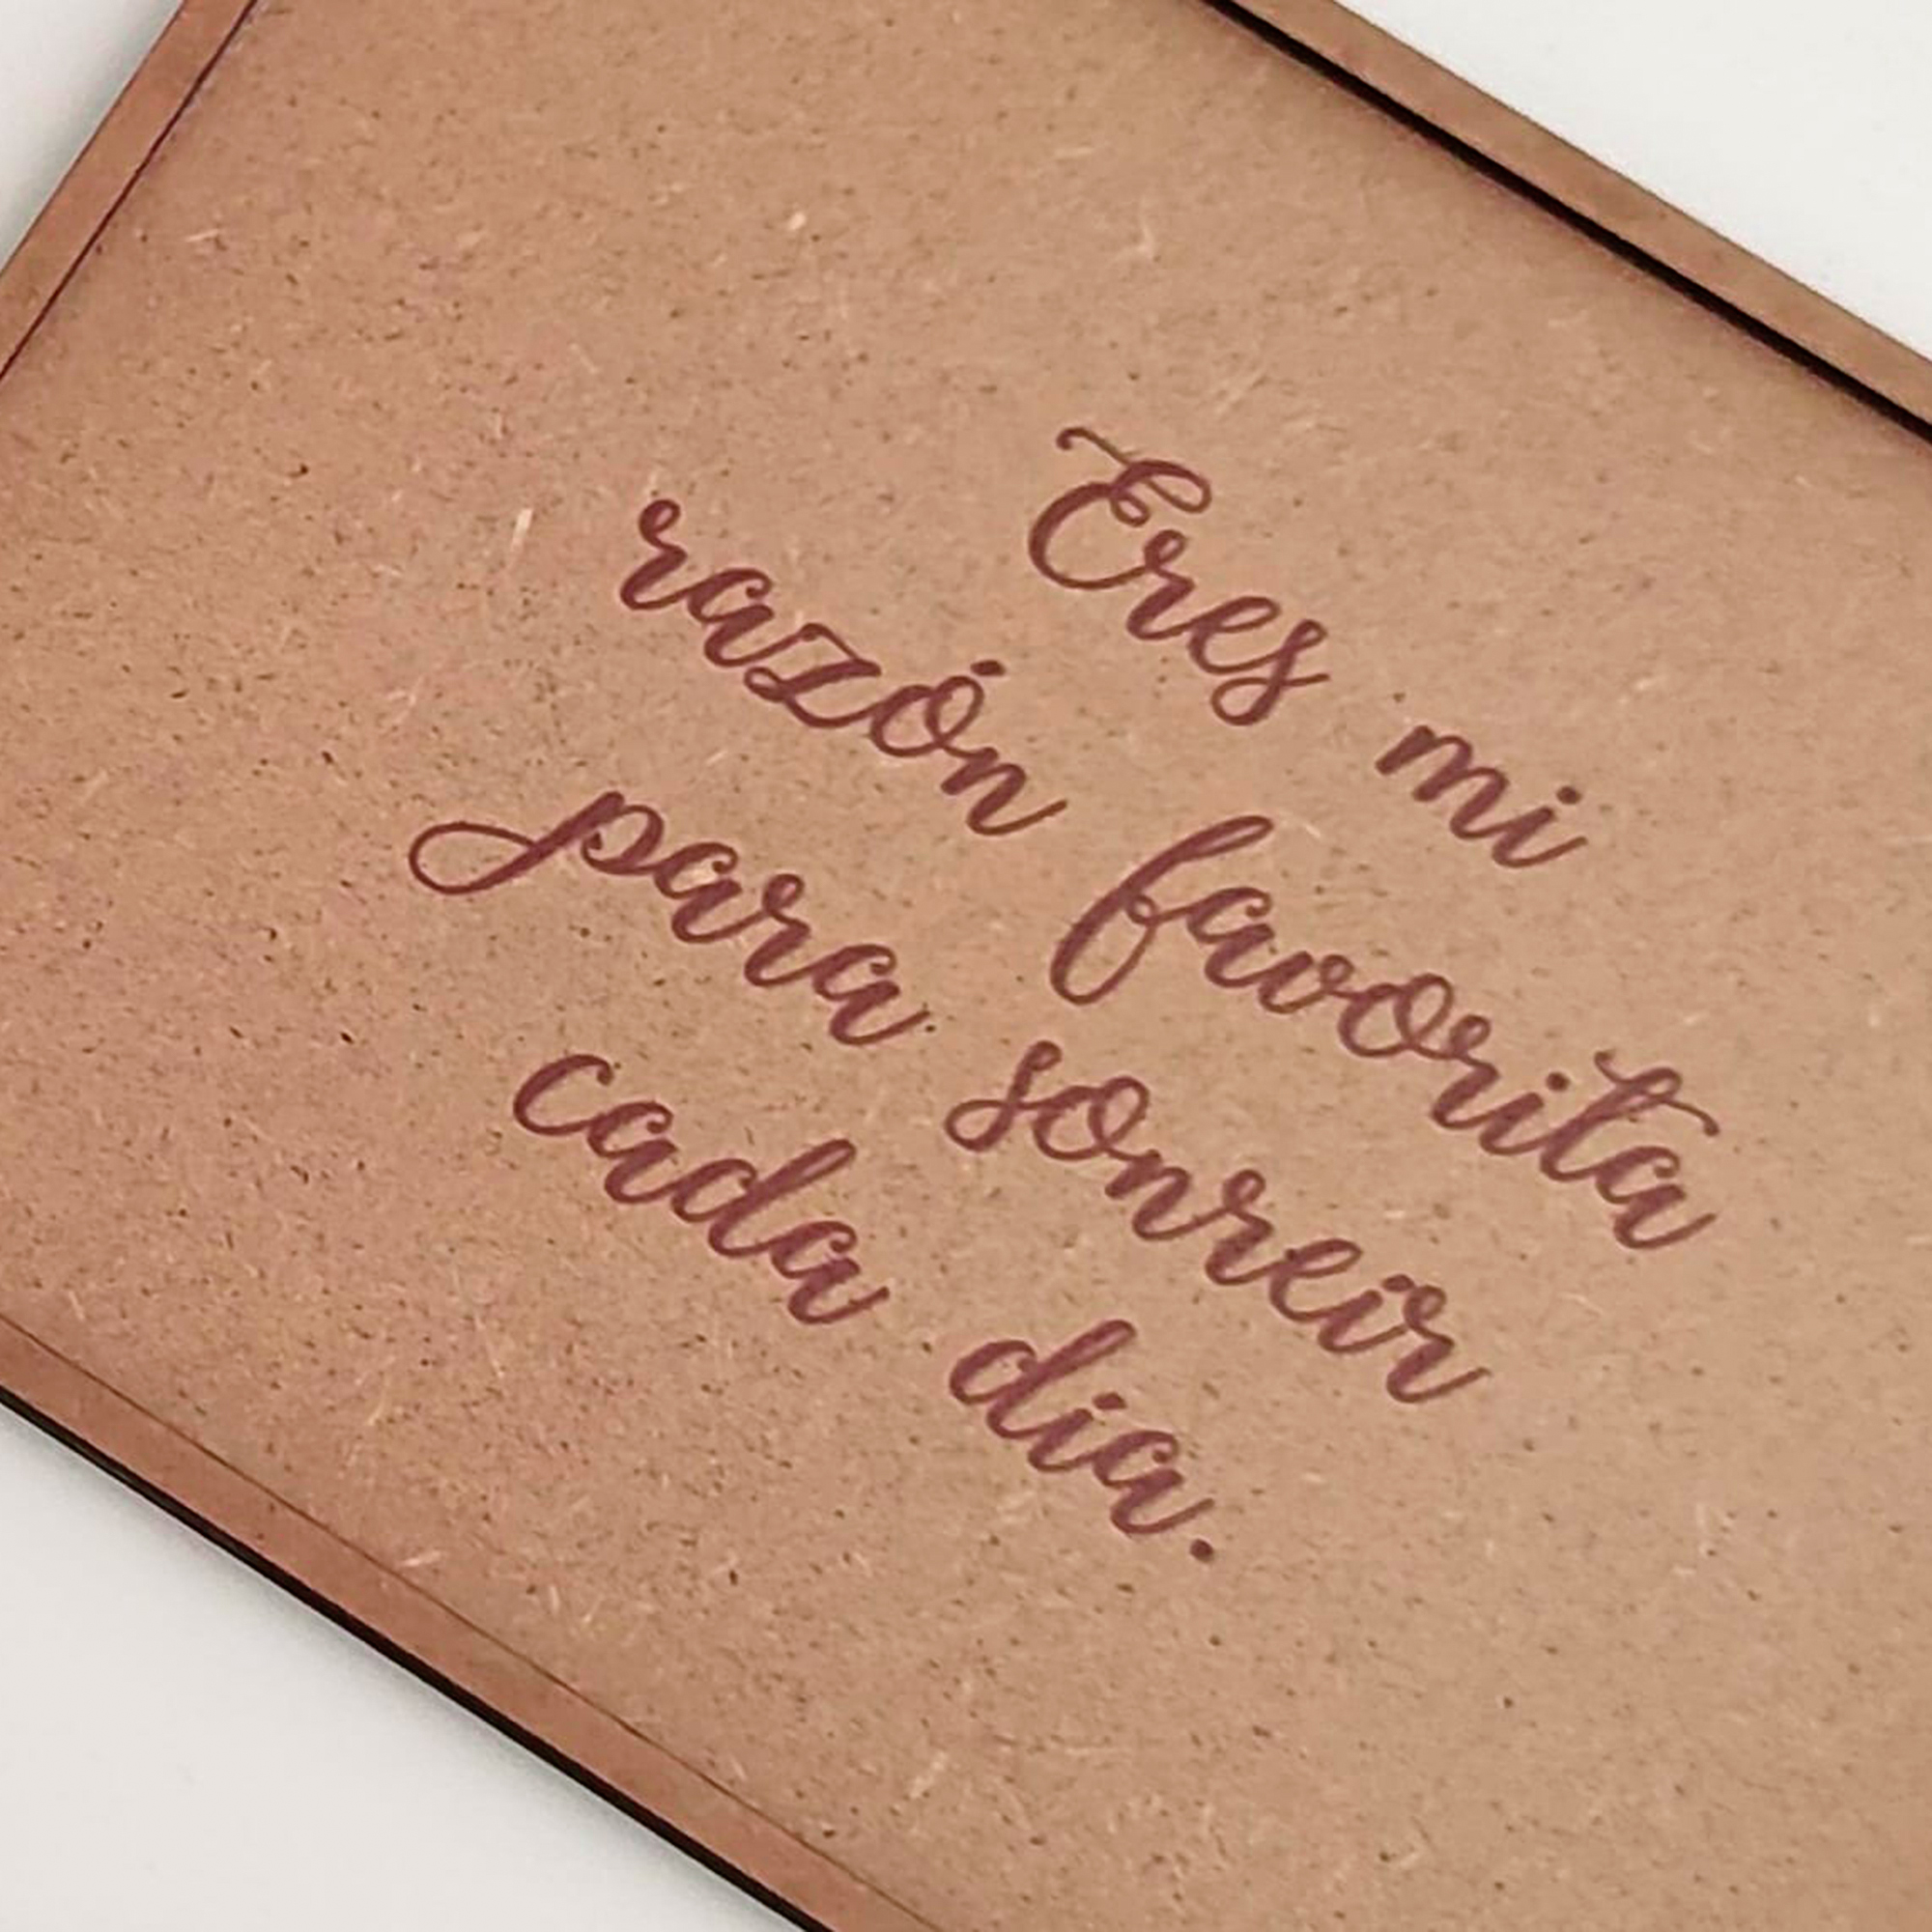 Eres mi
razón favorita
para sonreír
cada día.